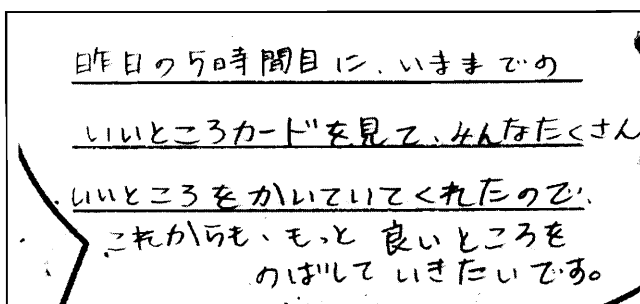 昨日の5時間目に、いままでの
いいところカードを見て、みんなたくさん
いいところをかいていてくれたので、
これからも、もっと良いところを
のばしていきたいです。